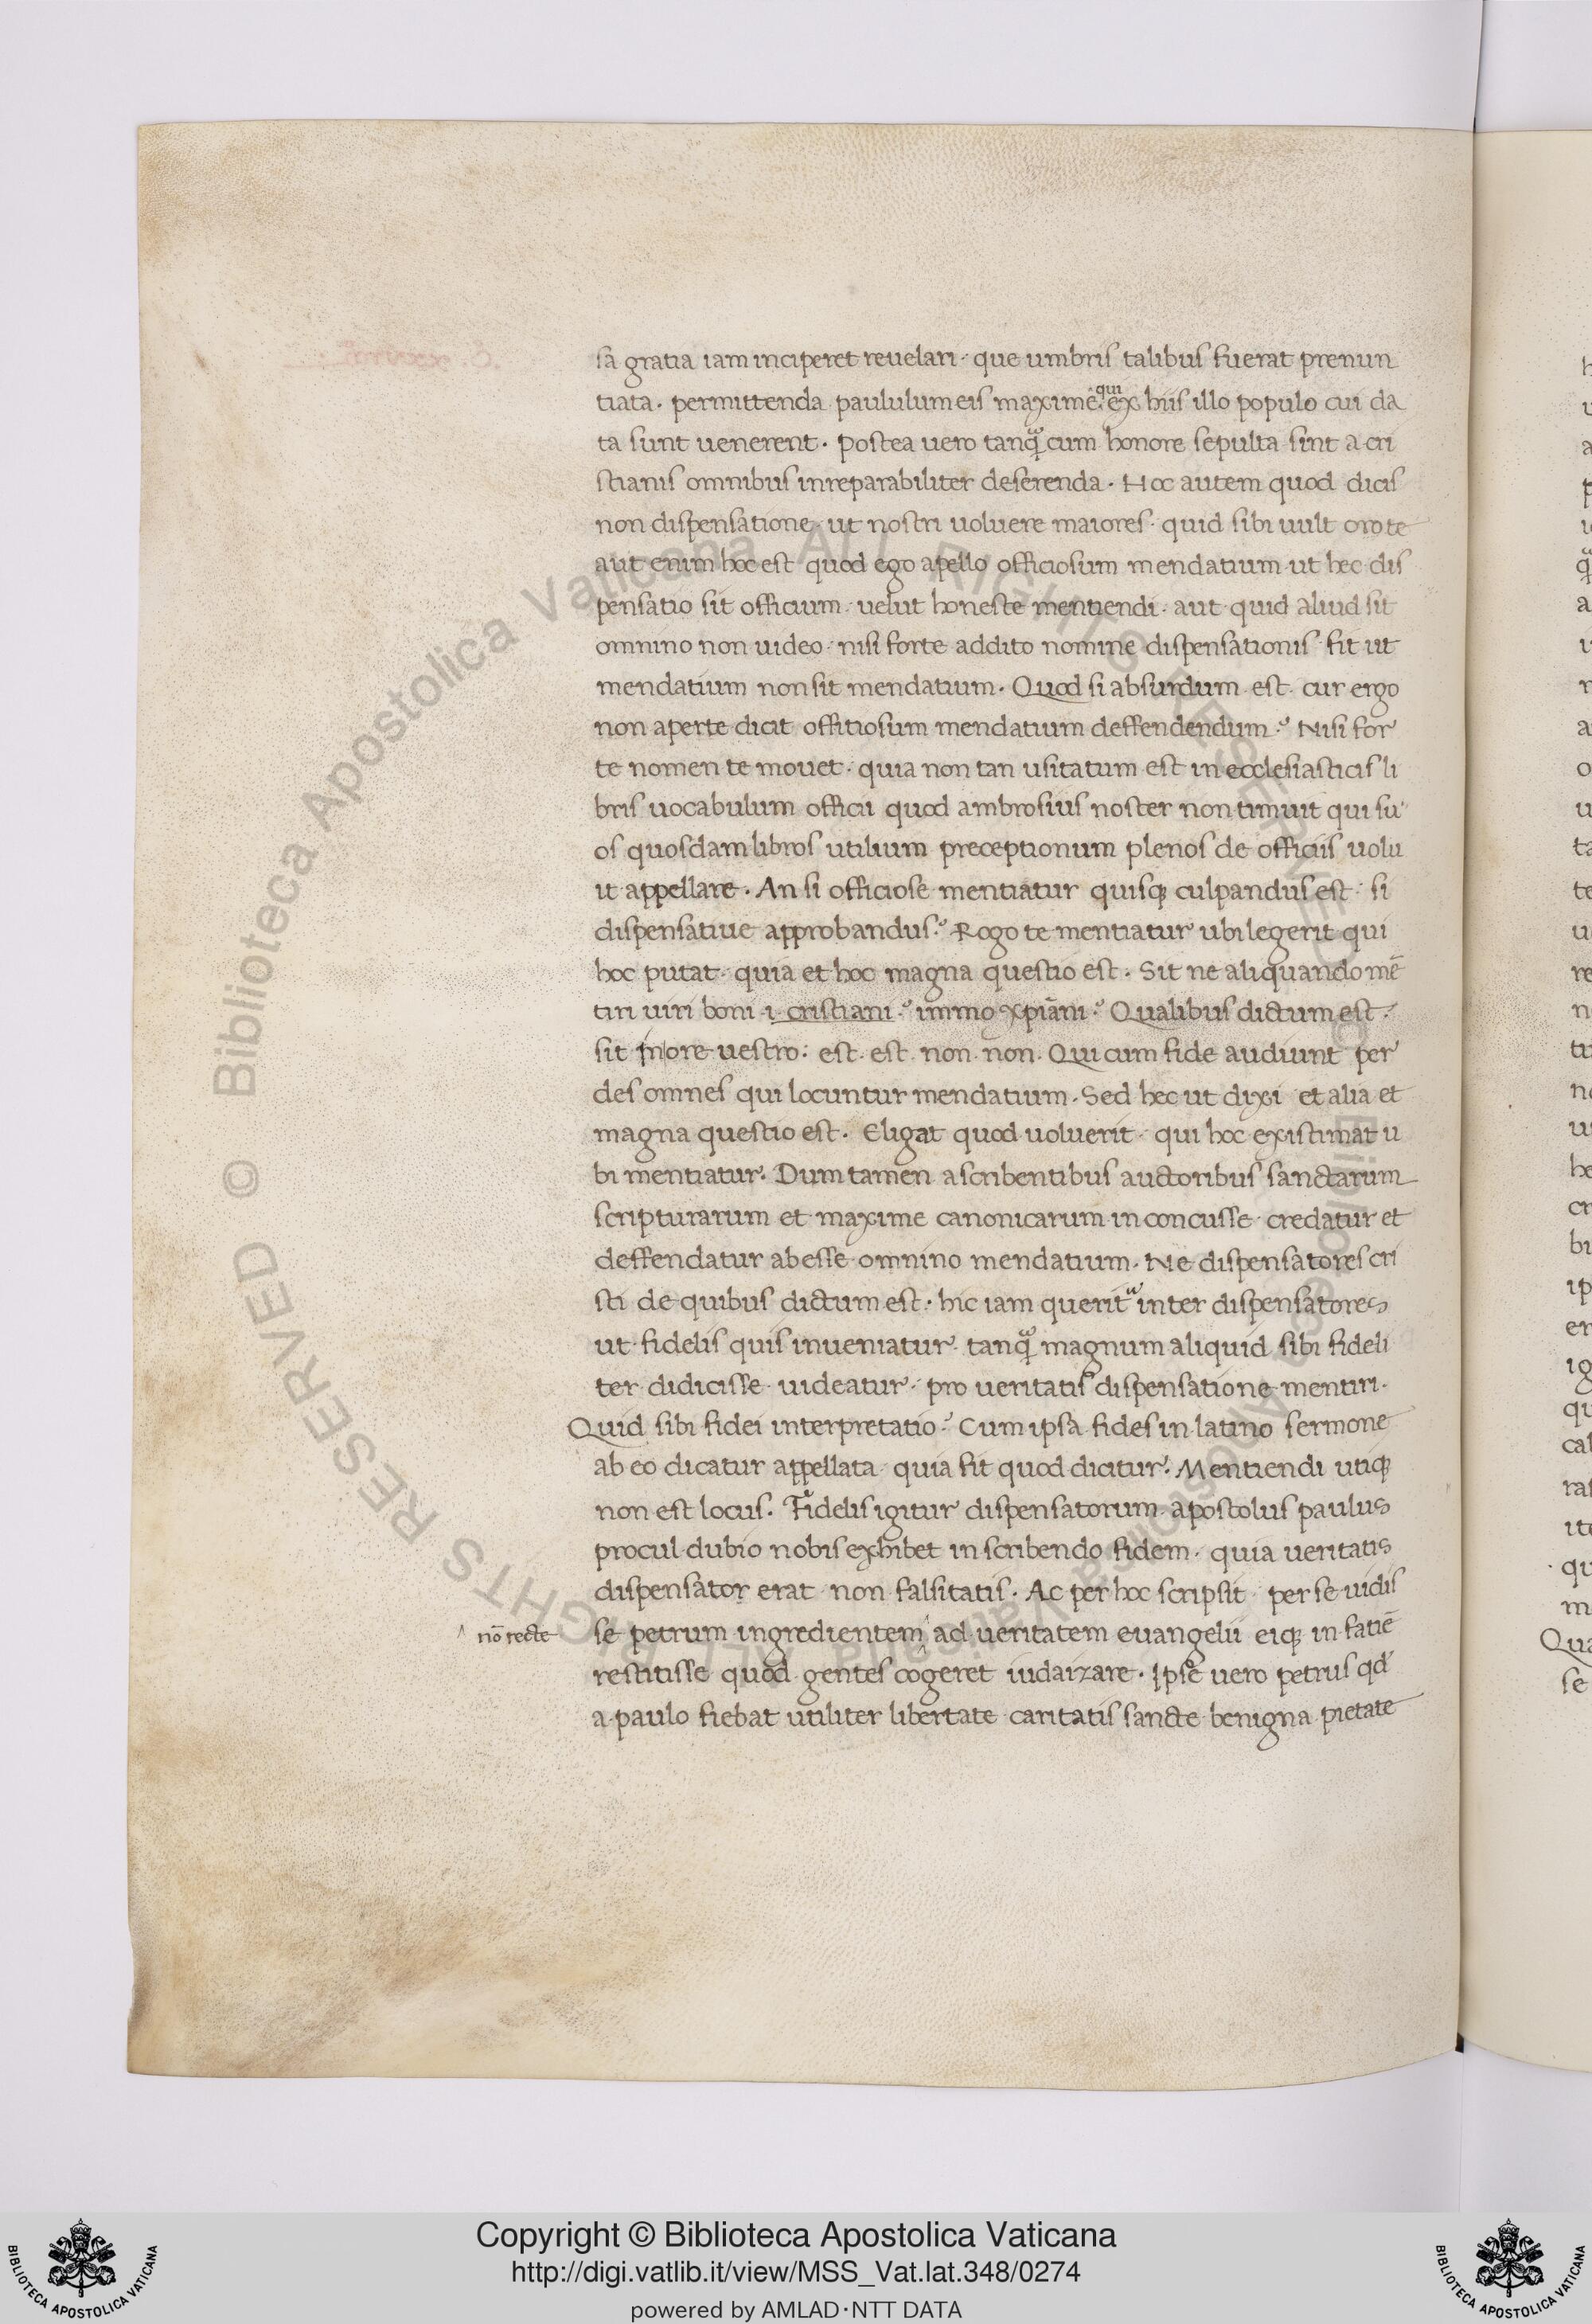 sa gratia iam inciperet reuelari· que umbris talibus fuerat prenun
tiata· permittenda paululum eis maxime qui ex hiis illo populo cui da
ta sunt uenerent· postea uero tanq̃ cum honore sepulta sint a cri
stianis omnibus inreparabiliter deserenda· Hoc autem quod dicis
non dispensatione ut nostri uoluere maiores· quid sibi uult oro te
aut enim hoc est quod ego apello officiosum mendatium ut hec dis
pensatio sit officium· uelut honeste mentiendi· aut quid aliud sit
omnino non uideo· nisi forte addito nomine dispensationis fit ut
mendatium non sit mendatium· Quod si absurdum est· cur ergo
non aperte dicit offitiosum mendatium deffendendum? Nisi for
te nomen te mouet· quia non tan usitatum est in ecclesiasticis li
bris uocabulum officii quod ambrosius noster non timuit qui su
os quosdam libros utilium preceptionum plenos de officiis uolu
it appellare· An si officiose mentiatur quisq; culpandus est· si
dispensatiue approbandus? Rogo te mentiatur ubi legerit qui
hoc putat· quia et hoc magna questio est· Sit ne aliquando mē
tiri uiri boni i· cristiani? immo xpiāni? Qualibus dictum est·
sit in ore uestro· est· est· non· non· Qui cum fide audiunt per
des omnes qui locuntur mendatium· Sed hec ut dixi et alia et
magna questio est· Eligat quod uoluerit· qui hoc existimat u
bi mentiatur· Dum tamen a scribentibus auctoribus sanctarum
scripturarum et maxime canonicarum inconcusse credatur et
deffendatur abesse omnino mendatium· Ne dispensatores cri
sti de quibus dictum est· hic iam querit᷑ inter dispensatores
ut fidelis quis inueniatur· tanq̃ magnum aliquid sibi fideli
ter didicisse uideatur· pro ueritatis dispensatione mentiri·
Quid sibi fidei interpretatio? Cum ipsa fides in latino sermone
ab eo dicatur appellata quia fit quod dicitur· Mentiendi utiq;
non est locus· Fidelis igitur dispensatorum apostolus paulus
procul dubio nobis exhibet in scribendo fidem· quia ueritatis
dispensator erat non falsitatis· Ac per hoc scripsit per se uidis
^ nō recte
se petrum ingredientem ^ ad ueritatem euangelii eiq; in fatiē
restitisse quod gentes cogeret iudaizare· Ipse uero petrus qd
a paulo fiebat utiliter libertate caritatis sancte benigna pietate
Copyright © Biblioteca Apostolica Vaticana
http://digi.vatlib.it/view/MSS_Vat.lat.348/0274
powered by AMLAD·NTT DATA